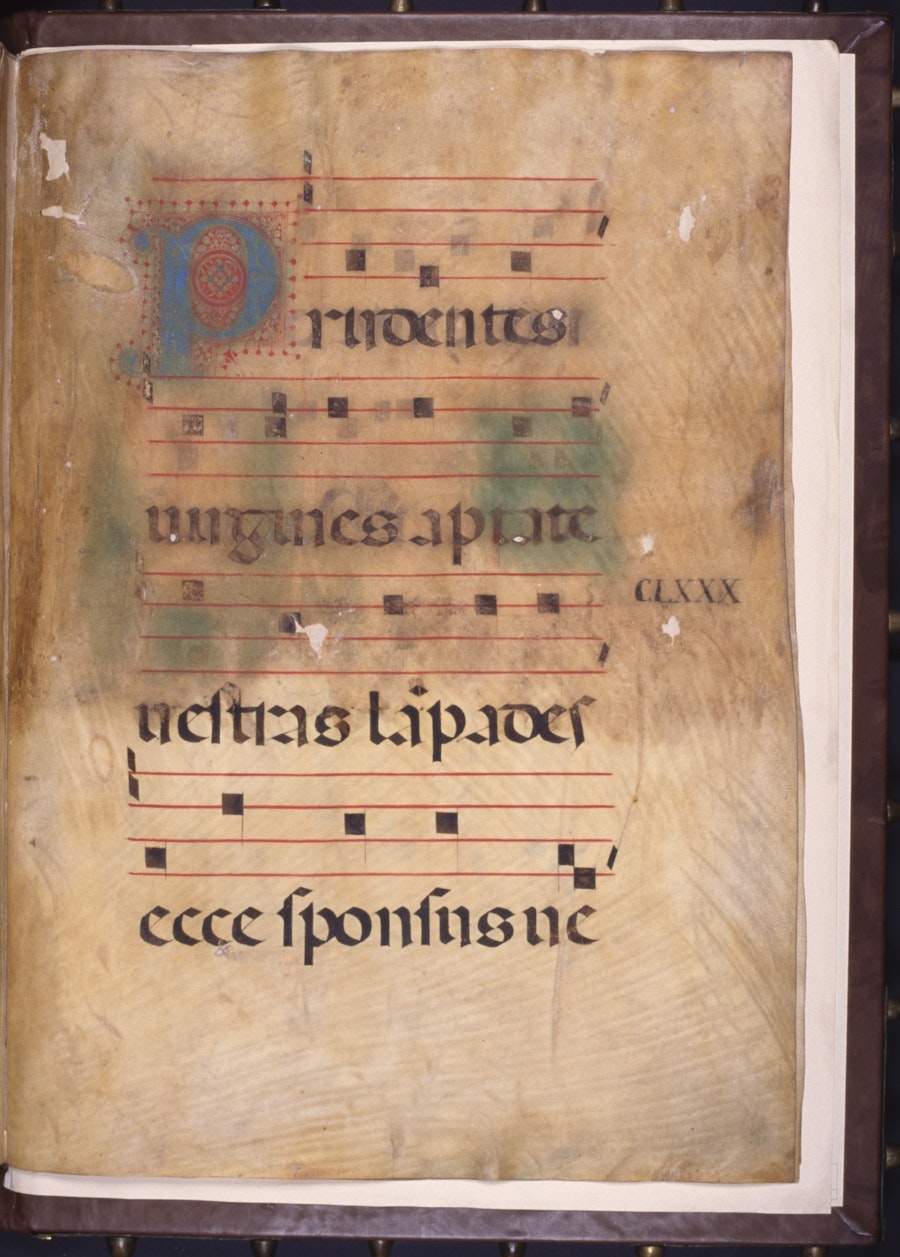 Prudentes
uirgines aptate
CLXXX
uestras lāpades
ecce sponsus ue